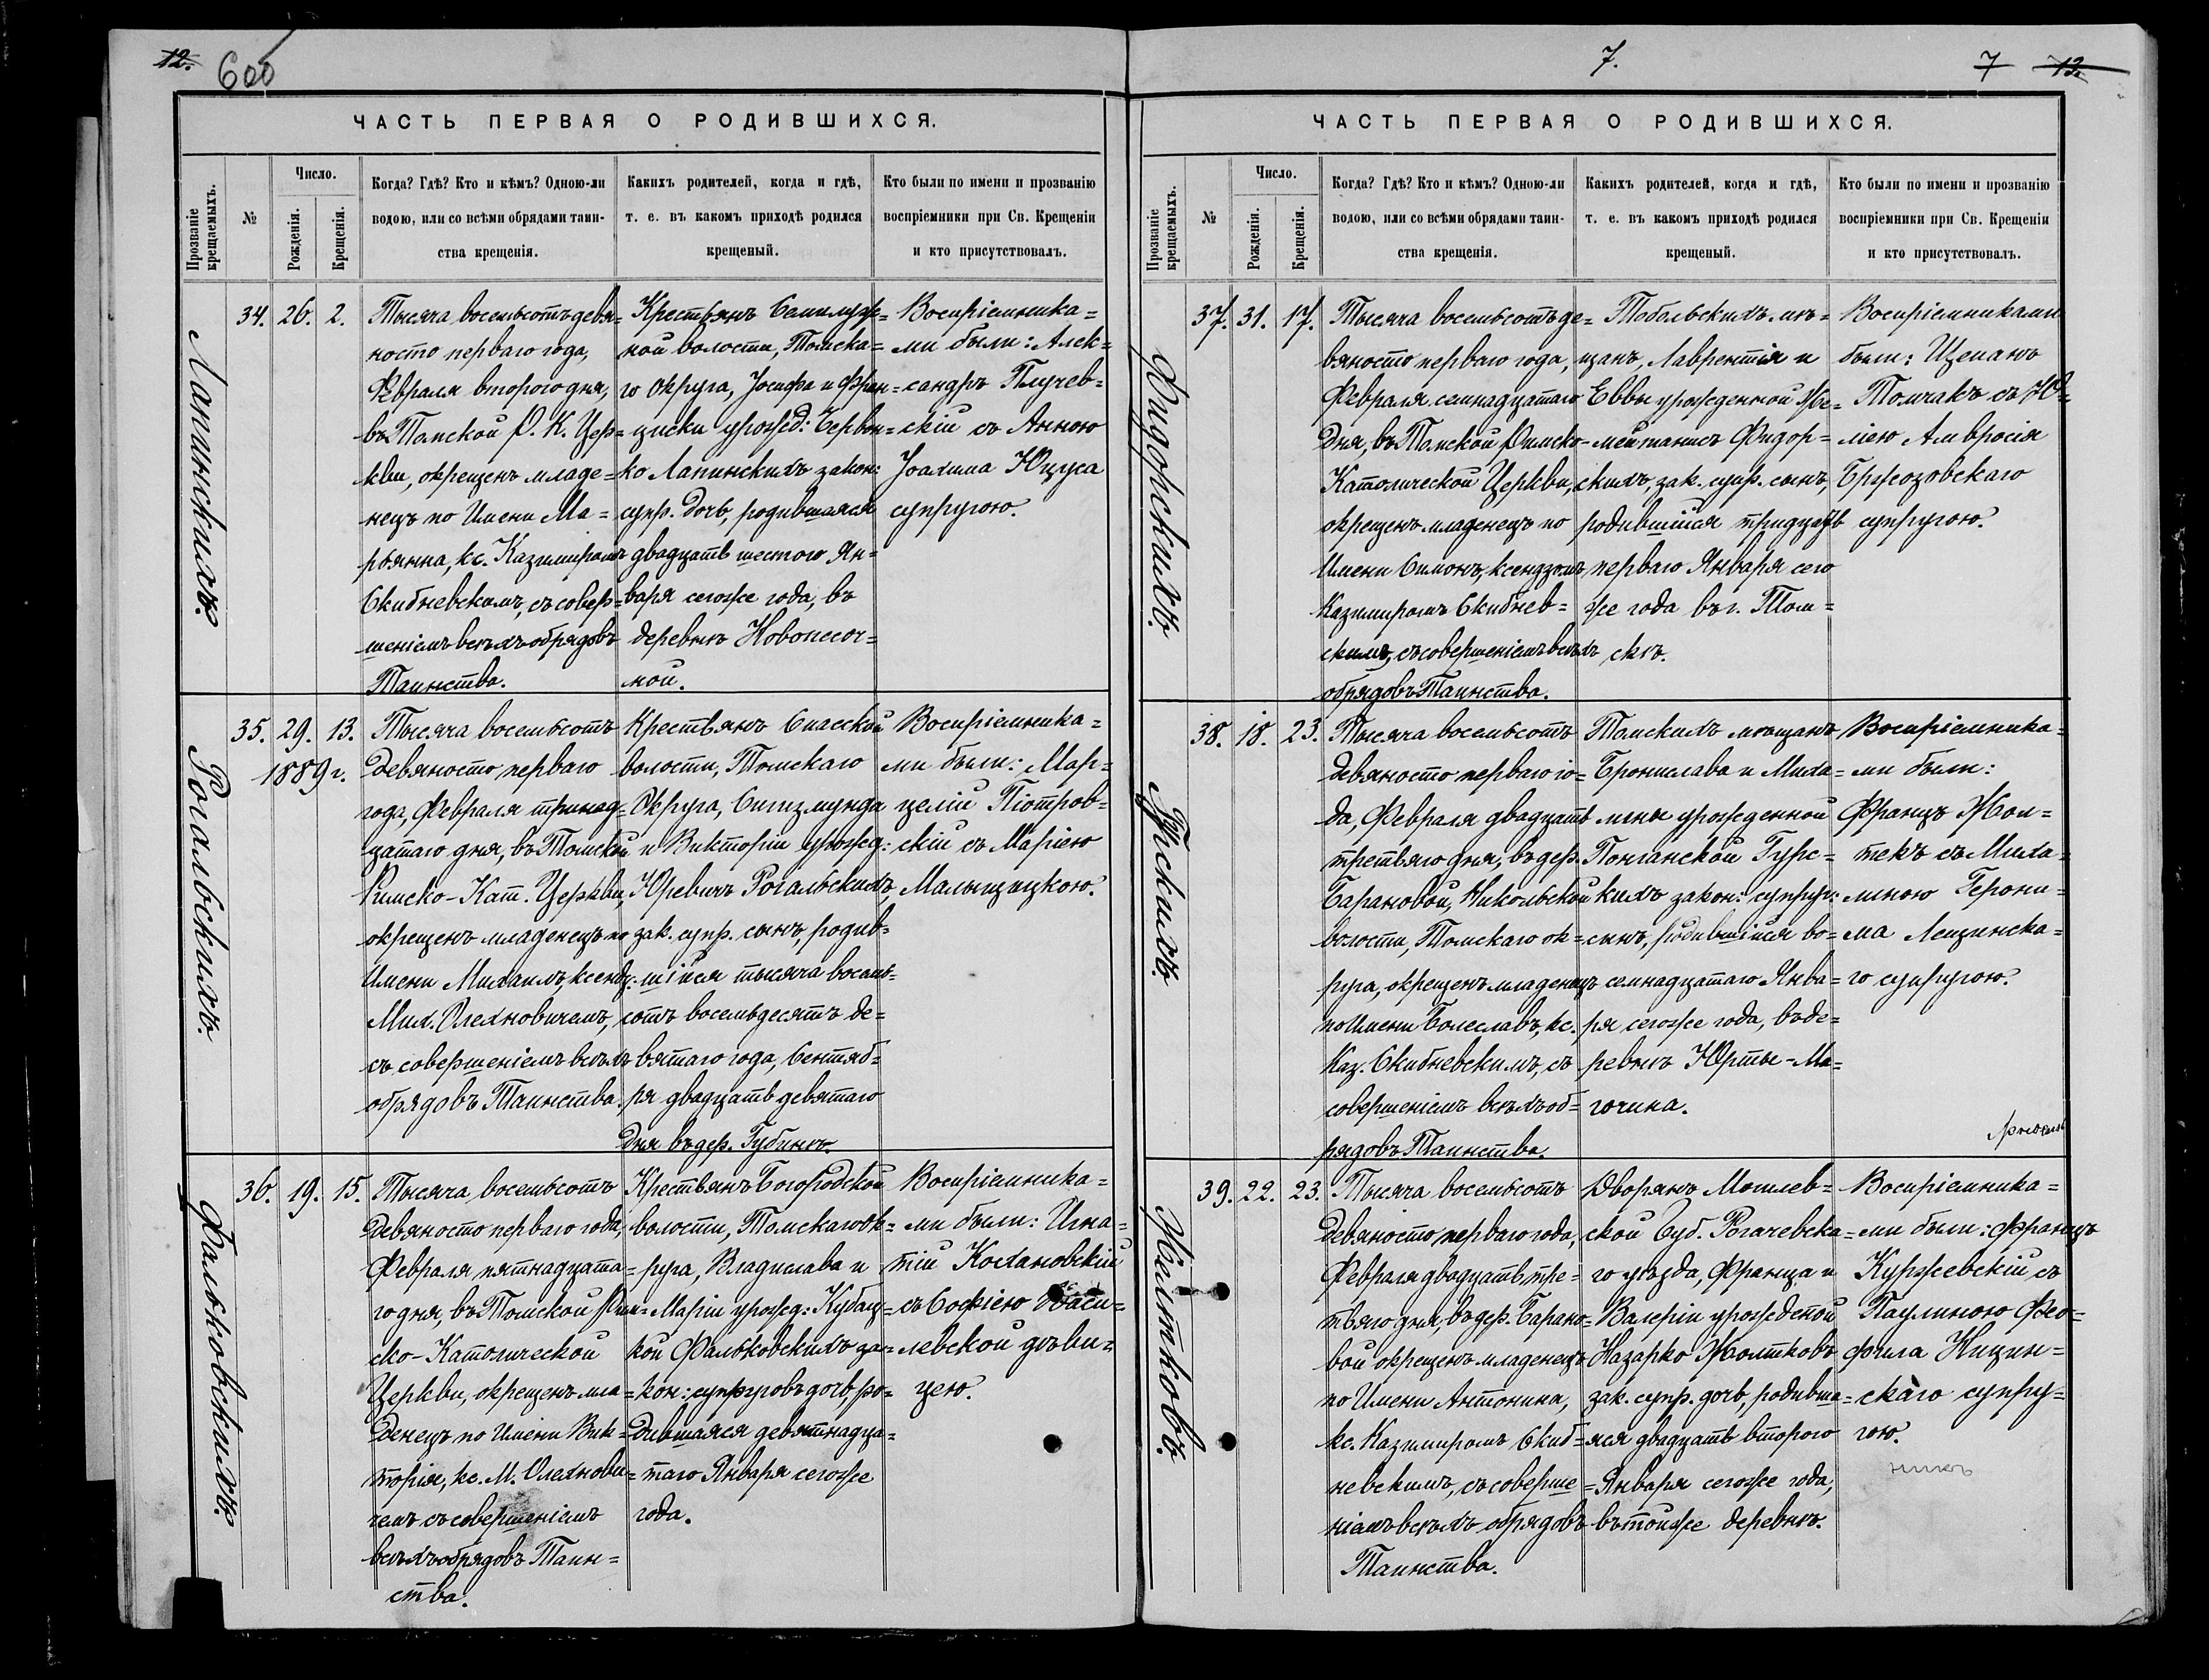 12.
600
ЧАСТЬ ПЕРВАЯ О РОДИВШИХСЯ.
Прозваніе крещаемыхъ.
№
Число.
Рожденія.
Крещенія.
Когда? Гдѣ? Кто и кѣмъ? Одною-ли
водою, или со всѣми обрядами таин-
ства крещенія.
Какихъ родителей, когда и гдѣ,
т. е. въ какомъ приходѣ родился
крещеный.
Кто были по имени и прозванію
воспріемники при Св. Крещеніи
и кто присутствовалъ.
Лапинскихъ.
34. 26. 2.
Тысяча восемьсотъ девя=
носто перваго года,
Февраля второго дня,
въ Томской Р. К. Цер=
кви, окрещенъ младе=
нецъ по Имени Ма=
ріянна, кс. Казимиромъ
Скибневскимъ, съ совер=
шеніемъ всѣхъ обрядовъ
Таинства.
Крестьянъ Семилуж=
ной волости, Томска=
го Округа, Іосифа и Фран=
циски урожд: Червон=
ко Лапинскихъ закон:
супр. дочь, родившаяся
двадцать шестого Ян=
варя сегоже года, въ
деревнѣ Новопесоч=
ной.
Воспріемника=
ми были: Алек=
сандръ Плучев=
скій съ Анною
Іоахима Юцуса
супругою.
Рогальскихъ.
35. 29. 13.
1889 г.
Тысяча восемьсотъ
девяносто перваго
года, Февраля тринад=
цатаго дня, въ Томской
Римско-Кат. Церкви,
окрещенъ младенецъ по
Имени Михаилъ, ксендз:
Мих. Олехновичемъ,
съ совершеніемъ всѣхъ
обрядовъ Таинства.
Крестьянъ Спасской
волости, Томскаго
Округа, Сигизмунда
и Викторіи урожд:
Юревичъ Рогальскихъ,
зак. супр. сынъ, родив=
шійся тысяча восемь=
сотъ восемьдесятъ де=
вятаго года, Сентяб=
ря двадцать девятаго
дня въ дер. Губинѣ.
Воспріемника=
ми были: Мар=
целій Піотров=
скій съ Маріею
Малыщицкою.
Фальковскихъ.
36. 19. 15.
Тысяча восемьсотъ
девяносто перваго года,
Февраля пятнадцата=
го дня, въ Томской Рим=
ско-Католической
Церкви, окрещенъ мла=
денецъ по Имени Вик=
торія, кс. М. Олехнови=
чемъ съ совершеніемъ
всѣхъ обрядовъ Таин=
ства.
Крестьянъ Богородской
волости, Томскаго Ок=
руга, Владислава и
Маріи урожд: Кубац=
кой Фальковскихъ за=
кон: супруговъ дочь, ро=
дившаяся девятнадца=
таго Января сегоже
года.
Воспріемника=
ми были: Игна=
тій Кохановскій
съ Софіею Васи=
левской дѣви=
цею.
7.
7 13.
ЧАСТЬ ПЕРВАЯ О РОДИВШИХСЯ.
Прозваніе крещаемыхъ.
№
Число.
Рожденія.
Крещенія.
Когда? Гдѣ? Кто и кѣмъ? Одною-ли
водою, или со всѣми обрядами таин-
ства крещенія.
Какихъ родителей, когда и гдѣ,
т. е. въ какомъ приходѣ родился
крещеный.
Кто были по имени и прозванію
воспріемники при Св. Крещеніи
и кто присутствовалъ.
Фидорскихъ.
37. 31. 17.
Тысяча восемьсотъ де=
вяносто перваго года,
Февраля семнадцатаго
дня, въ Томской Римско-
Католической Церкви,
окрещенъ младенецъ по
Имени Симонъ, ксендзомъ
Казимиромъ Скибнев=
скимъ, съ совершеніемъ всѣхъ
обрядовъ Таинства.
Тобольскихъ мѣ=
щанъ, Лаврентія и
Еввы урожденной Же=
мейтанисъ Фидор=
скихъ, зак. супр. сынъ,
родившійся тридцать
перваго Января сего
же года въ г. Том=
скѣ.
Воспріемниками
были: Щепанъ
Томчакъ съ Ю=
ліею Амвросія
Бржозовскаго
супругою.
Гурскихъ.
38. 18. 23.
Тысяча восемьсотъ
девяносто перваго го=
да, Февраля двадцать
третьяго дня, въ дер.
Барановой, Никольской
волости, Томскаго ок=
руга, окрещенъ младенецъ
по Имени Болеславъ, кс.
Каз. Скибневскимъ, съ
совершеніемъ всѣхъ об=
рядовъ Таинства.
Томскихъ мѣщанъ
Бронислава и Миха=
лины урожденной
Понганской Гурс=
кихъ закон: супруг:
сынъ, родившійся во=
семнадцатаго Янва=
ря сегоже года, въ де=
ревнѣ Юрты-Ма=
гочина.
Воспріемника=
ми были:
Францъ Жол=
текъ съ Миха=
линою Герони=
ма Лещинска=
го супругою.
Жолтковъ.
39. 22. 23.
Тысяча восемьсотъ
девяносто перваго года,
Февраля двадцать тре=
тьяго дня, въ дер. Барано=
вой окрещенъ младенецъ
по Имени Антонина,
кс. Казимиромъ Скиб=
невскимъ, съ соверше=
ніемъ всѣхъ обрядовъ
Таинства.
Дворянъ Могилев=
ской Губ. Рогачевска=
го уѣзда, Франца и
Валеріи урожденой
Назарко Жолтковъ
зак. супр. дочь, родивша=
яся двадцать второго
Января сегоже года,
въ тойже деревнѣ.
Воспріемника=
ми были: Францъ
Куржевскій съ
Паулиною Фео=
фила Ницин=
скаго супру=
гою.